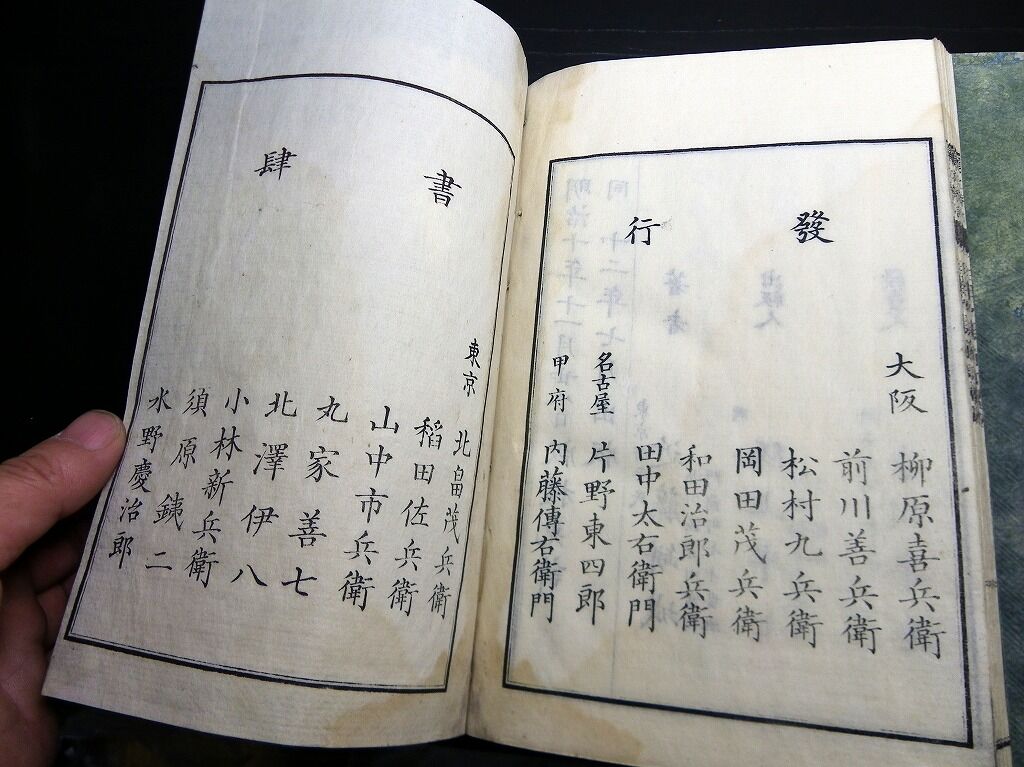 發行
大阪
柳原喜兵衛
前川善兵衛
松村九兵衛
岡田茂兵衛
和田治郎兵衛
田中太右衛門
名古屋 片野東四郎
甲府 内藤傳右衛門
書肆
東京
北畠茂兵衛
稻田佐兵衛
山中市兵衛
丸家善七
北澤伊八
小林新兵衛
須原銕二
水野慶治郎